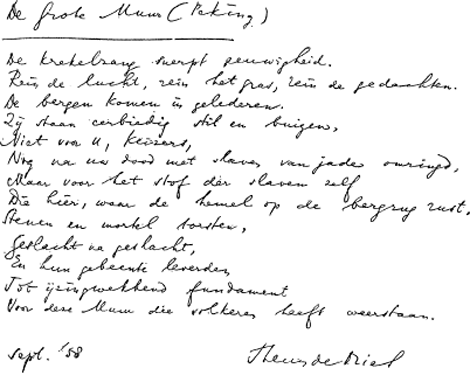 De Grote Muur (Peking)
De krekelzang sverpt eeuwigheid.
Rein de lucht, rein het gras, rein de gedachten.
De bergen komen in gelederen.
Zij staan eerbiedig stil en buigen,
Niet voor U, keizers,
Nog na uw dood met slaven van jade omringd,
Maar voor het stof der slaven zelf
Die hier, waar de hemel op de bergrug rust,
Stenen en mortel torsten,
Geslacht na geslacht,
En hun gebeente leverden
Tot ijzingwekkend fundament
Voor deze Muur die volkeren heeft weerstaan.
Sept. '58
Theun de Vries